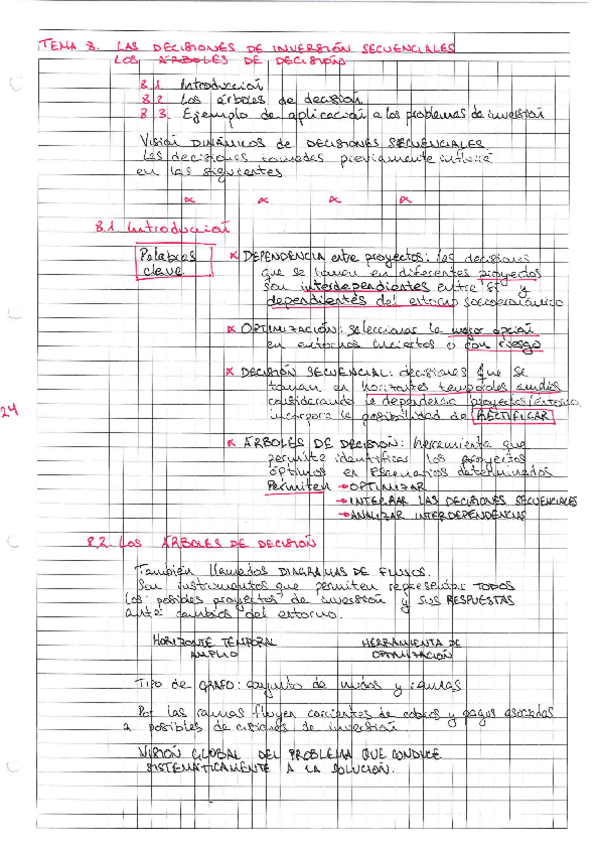 TEMA 8. LAS DECISIONES DE INVERSIÓN SECUENCIALES
LOS ÁRBOLES DE DECISIÓN
8.1 Introducción
8.2 Los árboles de decisión
8.3. Ejemplo de aplicación a los problemas de inversión
Visión DINÁMICOS de DECISIONES SECUENCIALES.
Las decisiones tomadas previamente influirá
en las siguientes
8.1 Introducción
Palabras clave
DEPENDENCIA entre proyectos: las decisiones
que se toman en diferentes proyectos
son interdependientes entre sí y
dependientes del entorno socioeconómico
OPTIMIZACIÓN: seleccionar la mejor opción
en entornos inciertos o con riesgo
DECISIÓN SECUENCIAL: decisiones que se
toman en horizontes temporales amplios
considerando la dependencia proyectos/entorno,
incorpora la posibilidad de RECTIFICAR
24
ÁRBOLES DE DECISIÓN: herramienta que
permite identificar los proyectos
óptimos en escenarios determinados
Permiten → OPTIMIZAR
→ INTEGRAR LAS DECISIONES SECUENCIALES
→ ANALIZAR INTERDEPENDENCIAS
8.2. LOS ÁRBOLES DE DECISIÓN
También llamados DIAGRAMAS DE FLUJOS.
Son instrumentos que permiten representar TODOS
los posibles proyectos de inversión y sus RESPUESTAS
ante cambios del entorno.
HORIZONTE TEMPORAL AMPLIO
HERRAMIENTA DE OPTIMIZACIÓN
Tipo de GRAFO: conjunto de nudos y ramas
Por las ramas fluyen corrientes de cobros y pagos asociadas
a posibles decisiones de inversión
VISIÓN GLOBAL DEL PROBLEMA QUE CONDUCE
SISTEMÁTICAMENTE A LA SOLUCIÓN.